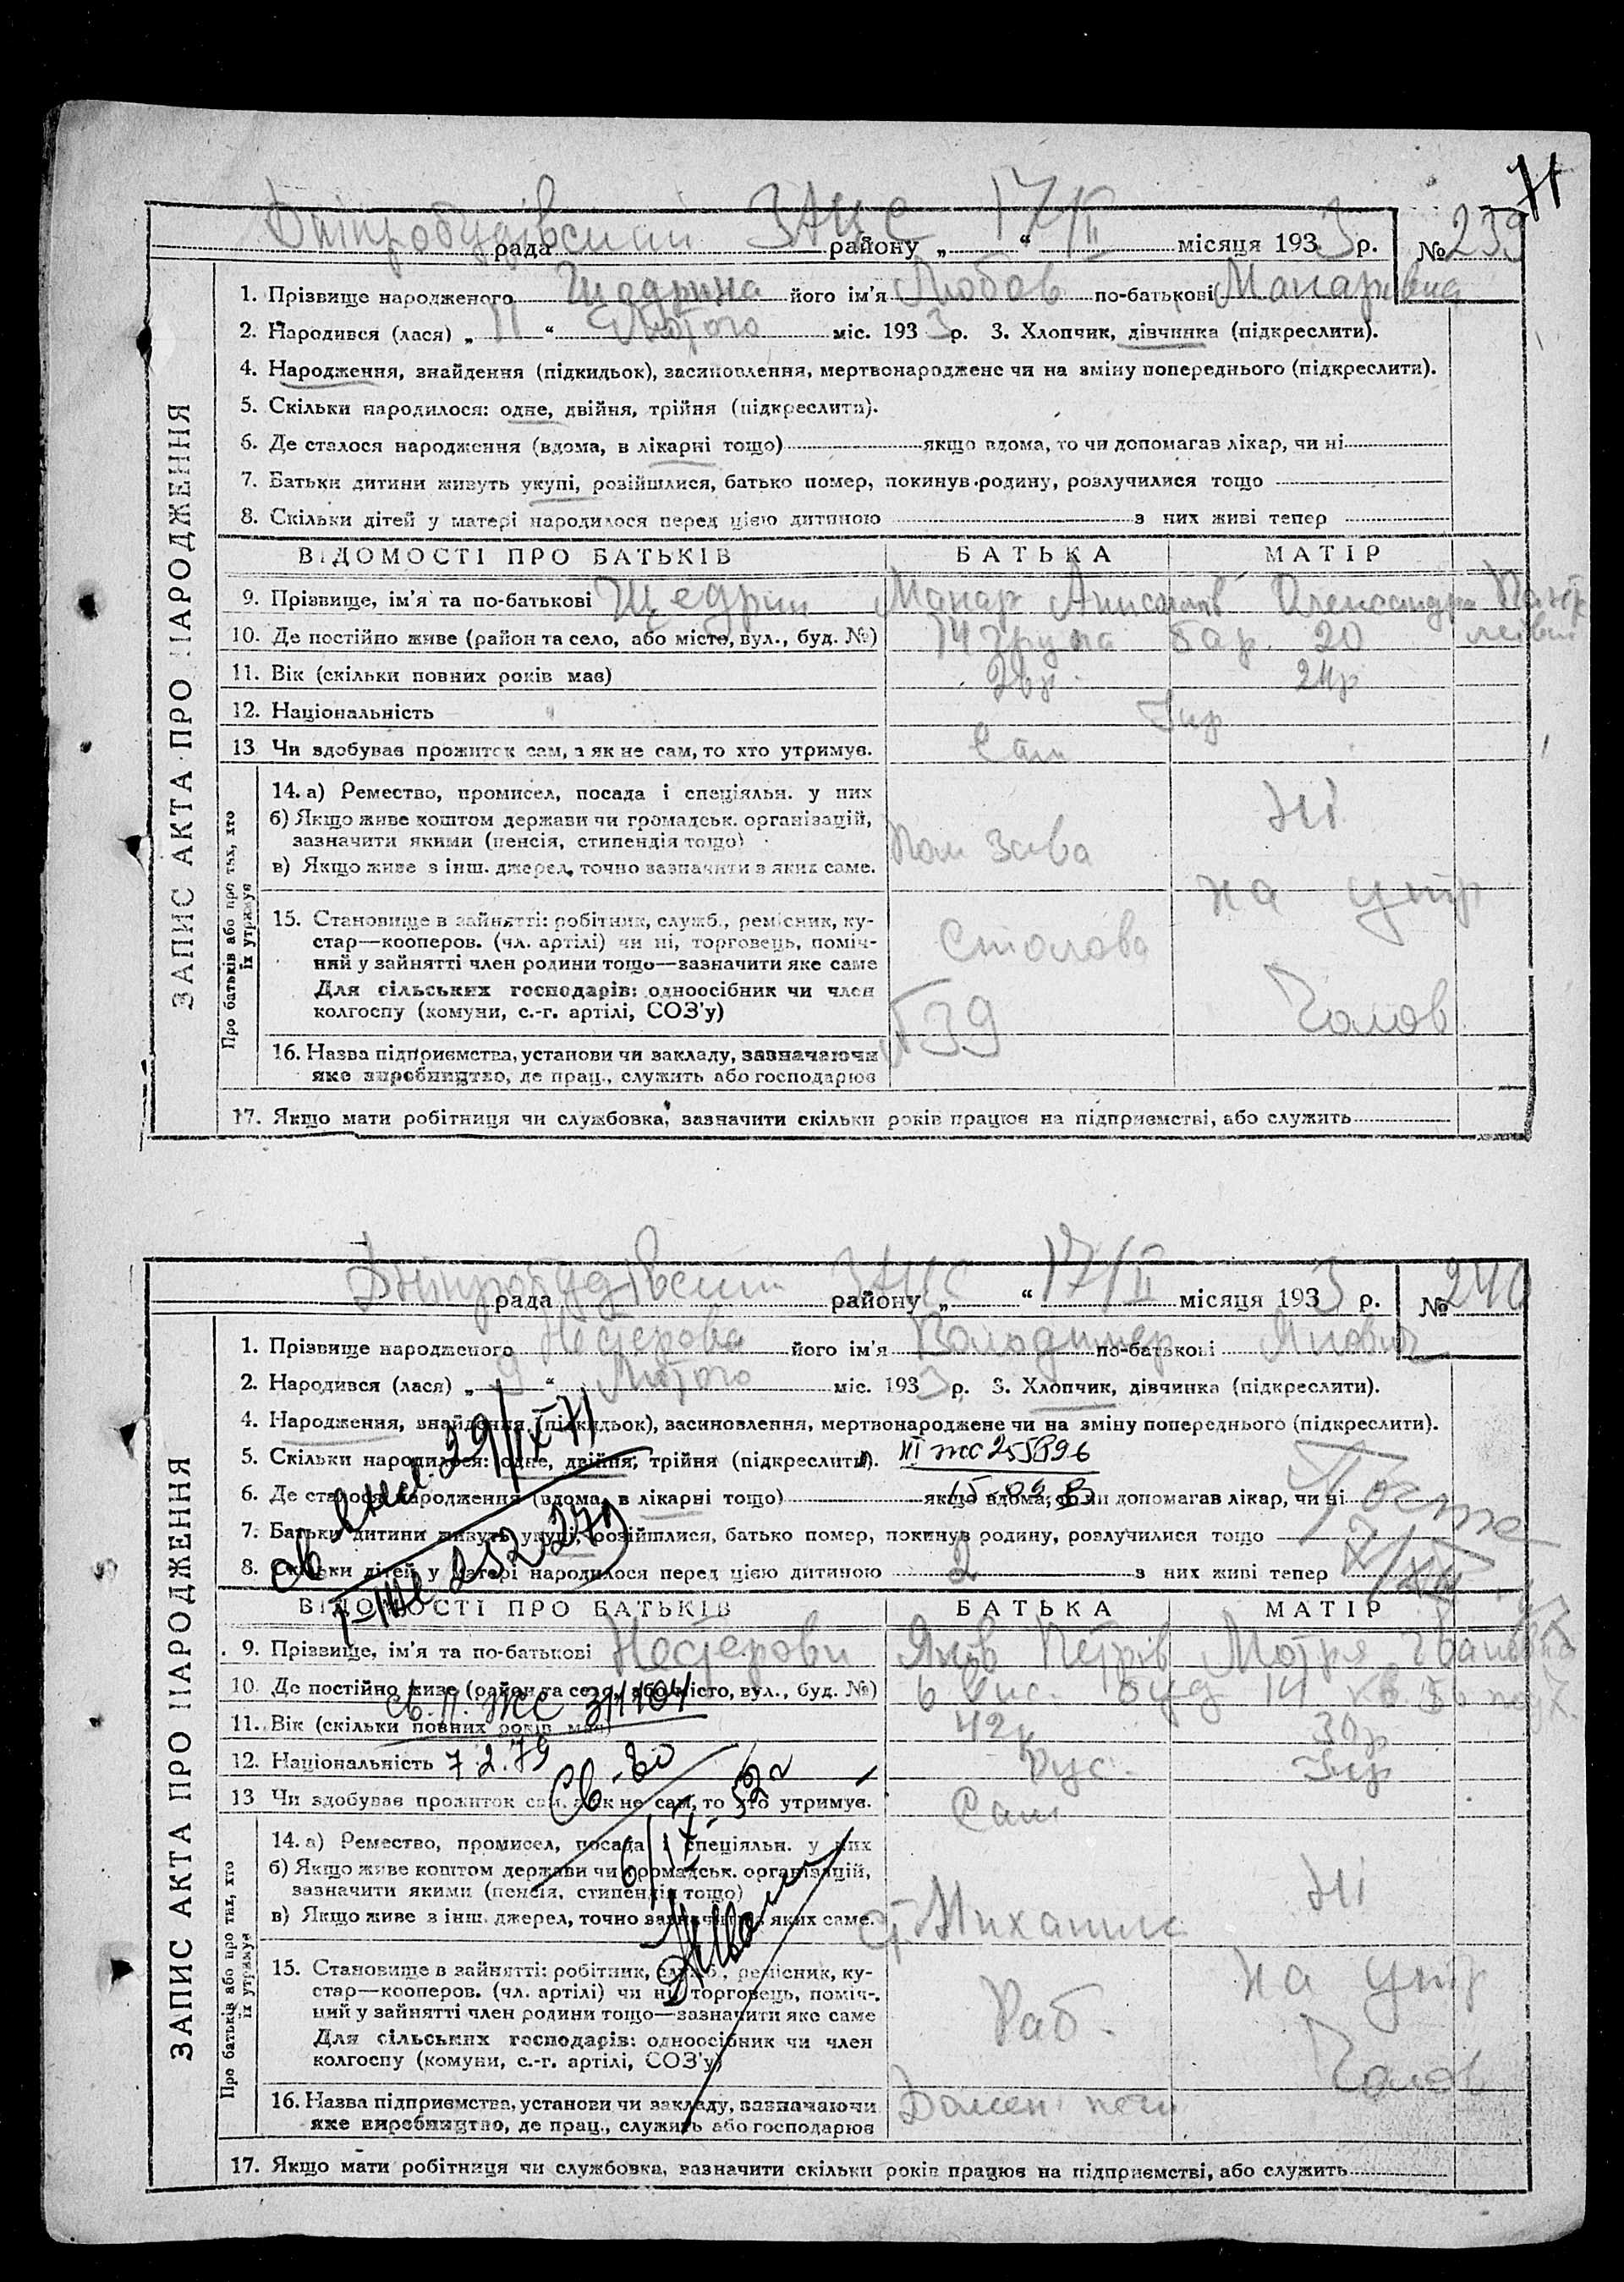 71
Дніпробудівський ЗАЦС 17/II
рада району „ “ місяця 1933 р. № 239
ЗАПИС АКТА ПРО НАРОДЖЕННЯ
1. Прізвище народженого Щедрина його ім’я Любов по-батькові Макарівна
2. Народився (лася) „11“ Лютого міс. 1933 р. 3. Хлопчик, дівчинка (підкреслити).
4. Народження, знайдення (підкидьок), засиновлення, мертвонароджене чи на зміну попереднього (підкреслити).
5. Скільки народилося: одне, двійня, трійня (підкреслити).
6. Де сталося народження (вдома, в лікарні тощо) якщо вдома, то чи допомагав лікар, чи ні
7. Батьки дитини живуть укупі, розійшлися, батько помер, покинув родину, розлучилися тощо
8. Скільки дітей у матері народилося перед цією дитиною з них живі тепер
ВІДОМОСТІ ПРО БАТЬКІВ БАТЬКА МАТІР
9. Прізвище, ім’я та по-батькові Щедрин Макар Олександра
10. Де постійно живе (район та село, або місто, вул., буд. №) 14 група бар. 20
11. Вік (скільки повних років має) 24р
12. Національність Укр
13 Чи здобуває прожиток сам, а як не сам, то хто утримує. Сам
Про батьків або про тих, хто їх утримує
14. а) Ремество, промисел, посада і спеціяльн. у них Ні
б) Якщо живе коштом держави чи громадськ. організацій,
зазначити якими (пенсія, стипендія тощо) Пом Зава
в) Якщо живе з інш. джерел, точно зазначити з яких саме.
на утр
15. Становище в зайнятті: робітник, служб., ремісник, ку-
стар—кооперов. (чл. артілі) чи ні, торговець, поміч- Столова
ний у зайнятті член родини тощо—зазначити яке саме
Для сільських господарів: одноосібник чи член
колгоспу (комуни, с.-г. артілі, СОЗ’у) 39 Чолов
16. Назва підприємства, установи чи закладу, зазначаючи
яке виробництво, де прац., служить або господарює
17. Якщо мати робітниця чи службовка, зазначити скільки років працює на підприємстві, або служить
Дніпробудівський ЗАЦС 17/II
рада району „ “ місяця 1933 р. № 240
ЗАПИС АКТА ПРО НАРОДЖЕННЯ
1. Прізвище народженого Нестерова його ім’я Володимер по-батькові Якович
2. Народився (лася) „9“ Лютого міс. 1933 р. 3. Хлопчик, дівчинка (підкреслити).
4. Народження, знайдення (підкидьок), засиновлення, мертвонароджене чи на зміну попереднього (підкреслити).
29/IX-71
5. Скільки народилося: одне, двійня, трійня (підкреслити).
6. Де сталося народження (вдома, в лікарні тощо) якщо вдома, то чи допомагав лікар, чи ні
7. Батьки дитини живуть укупі, розійшлися, батько помер, покинув родину, розлучилися тощо
8. Скільки дітей у матері народилося перед цією дитиною 2 з них живі тепер
ВІДОМОСТІ ПРО БАТЬКІВ БАТЬКА МАТІР
9. Прізвище, ім’я та по-батькові Нестерови Яків Петрів Мотря Іванівна
10. Де постійно живе (район та село, або місто, вул., буд. №) 6 буд 14 кв. 5
11. Вік (скільки повних років має) 42р 30р
12. Національність 7.2.79 Рус. Укр
13 Чи здобуває прожиток сам, а як не сам, то хто утримує. Сам
Про батьків або про тих, хто їх утримує
14. а) Ремество, промисел, посада і спеціяльн. у них Ні
б) Якщо живе коштом держави чи громадськ. організацій,
зазначити якими (пенсія, стипендія тощо)
в) Якщо живе з інш. джерел, точно зазначити з яких саме. Ст Механик
15. Становище в зайнятті: робітник, служб., ремісник, ку- на утр
стар—кооперов. (чл. артілі) чи ні, торговець, поміч-
ний у зайнятті член родини тощо—зазначити яке саме Раб.
Для сільських господарів: одноосібник чи член
колгоспу (комуни, с.-г. артілі, СОЗ’у) Чолов
16. Назва підприємства, установи чи закладу, зазначаючи Домені печі
яке виробництво, де прац., служить або господарює
17. Якщо мати робітниця чи службовка, зазначити скільки років працює на підприємстві, або служить